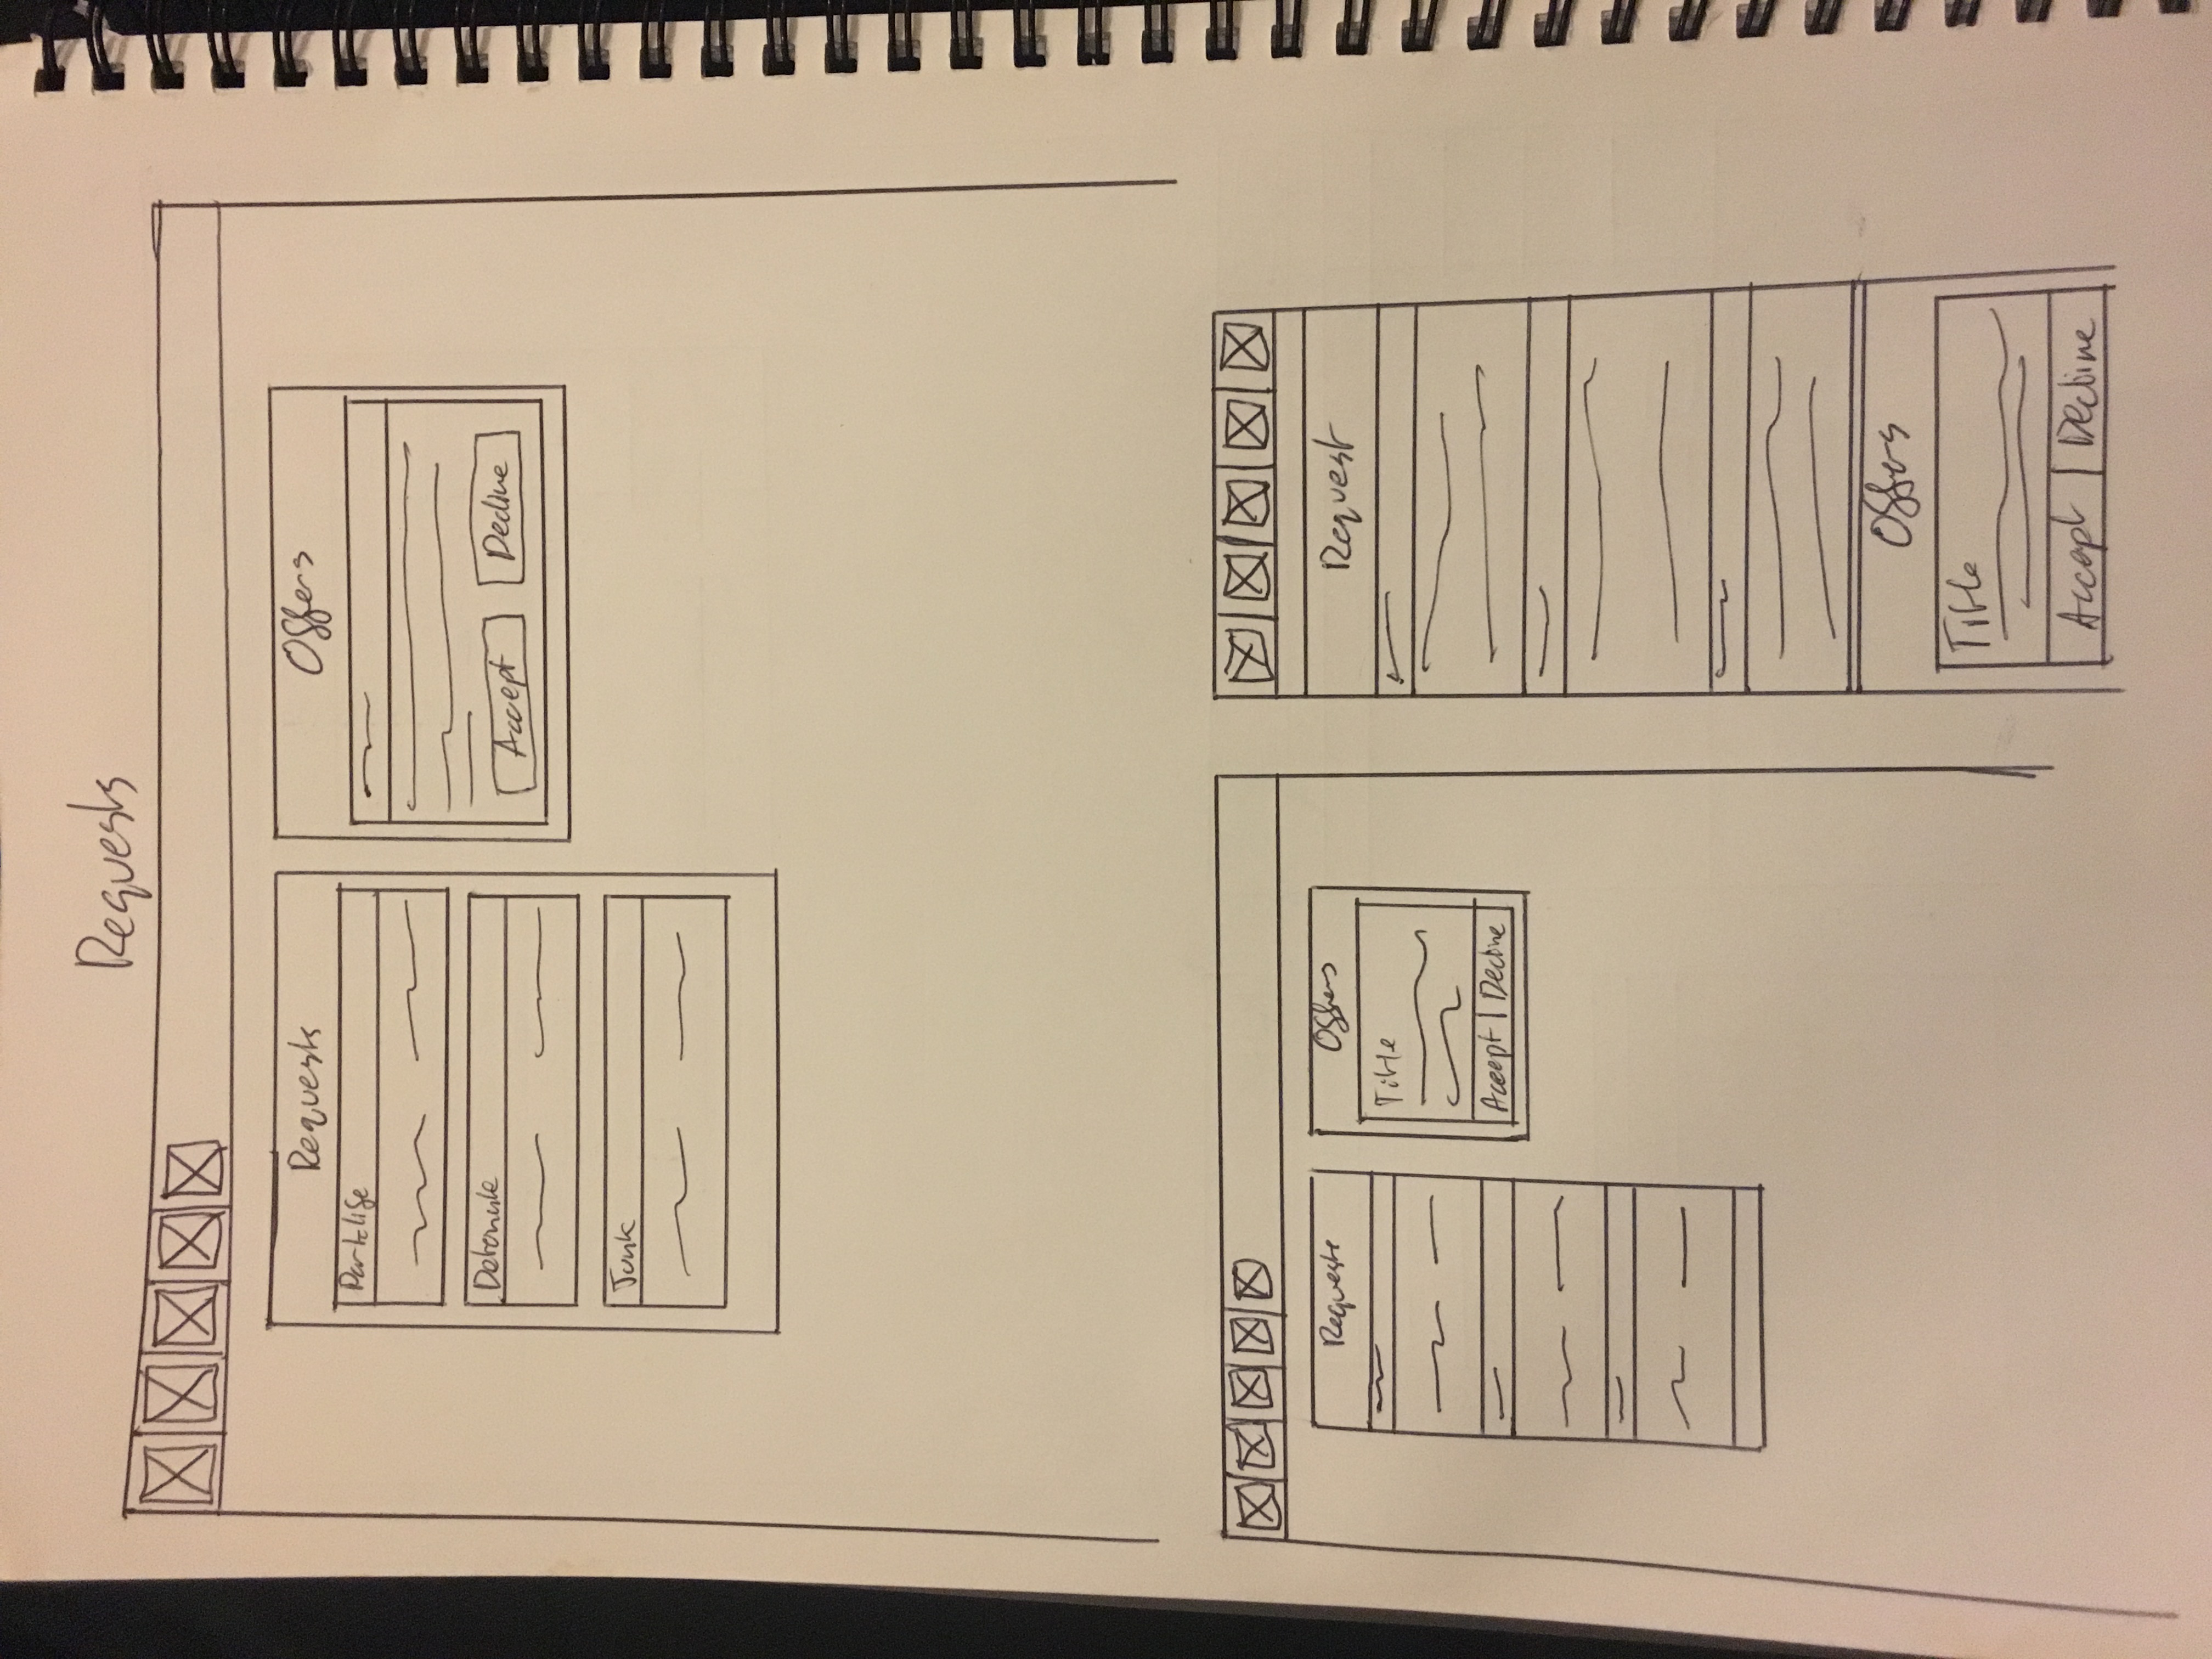 Requests
Requests
Offers
Parklife
Detonate
Accept
Decline
Junk
Requests
Offers
Title
Accept
Decline
Request
Offers
Title
Accept
Decline